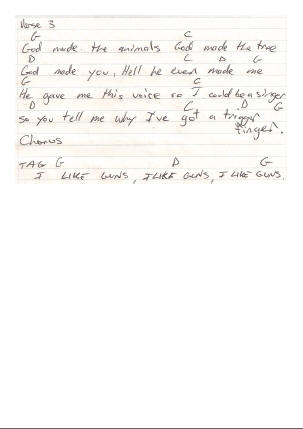 Verse 3
G C
God made the animals God made the tree
D C D G
God made you, Hell he even made me
G C
He gave me this voice so I could be a singer
D C D G
so you tell me why I've got a trigger
finger.
Chorus
TAG G D G
I LIKE GUNS, I LIKE GUNS, I LIKE GUNS.